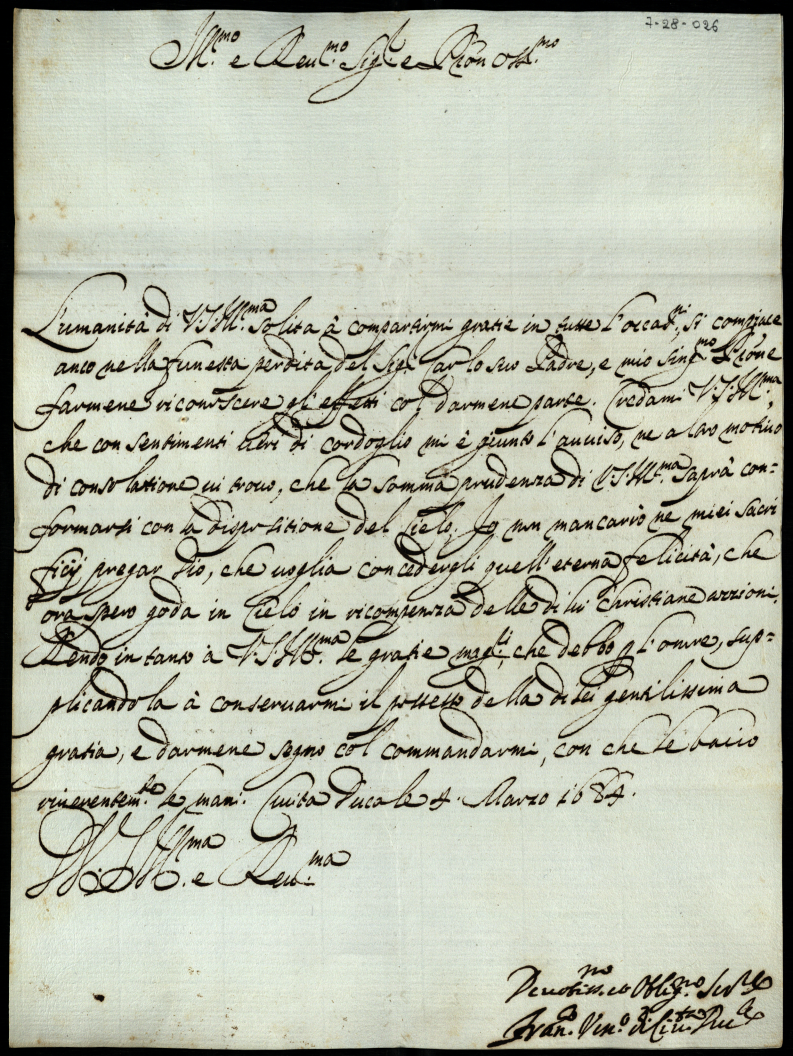 7-28-026
Ill.mo e Reu.mo Sig.r e Pron Oss.mo
L'umanità di V.S.Ill.ma solita à compartirmi gratie in tutte l'occas.ni, si compiace
anco nella funesta perdita del Sig.r Carlo suo Padre, e mio Sing.mo Prone
farmene riconoscere gl'effetti col darmene parte. Credami V.S.Ill.ma,
che con sentimenti ueri di cordoglio mi è giunto l'auuiso, ne altro motiuo
di consolatione ui trouo, che la somma prudenza di V.S.Ill.ma saprà con=
formarsi con la dispositione del Cielo. Io non mancarò ne miei sacri
ficij pregar Dio, che uoglia concedergli quell'eterna felicità, che
ora spero goda in Cielo in ricompenza delle di lui christiane azzioni.
Rendo in tanto à V.S.Ill.ma le gratie mag.ri, che debbo p l'onore, sup=
plicandola à conseruarmi il possesso della di lei gentilissima
gratia, e darmene segno col commandarmi, con che le bacio
riuerentem.te le mani. Ciuita Ducale 4. Marzo 1684.
D. V.S.Ill.ma e Reu.ma
Deuotiss.mo Oblig.mo Ser.re
Fran.co Vesc.o di Ciu.ta Duc.le